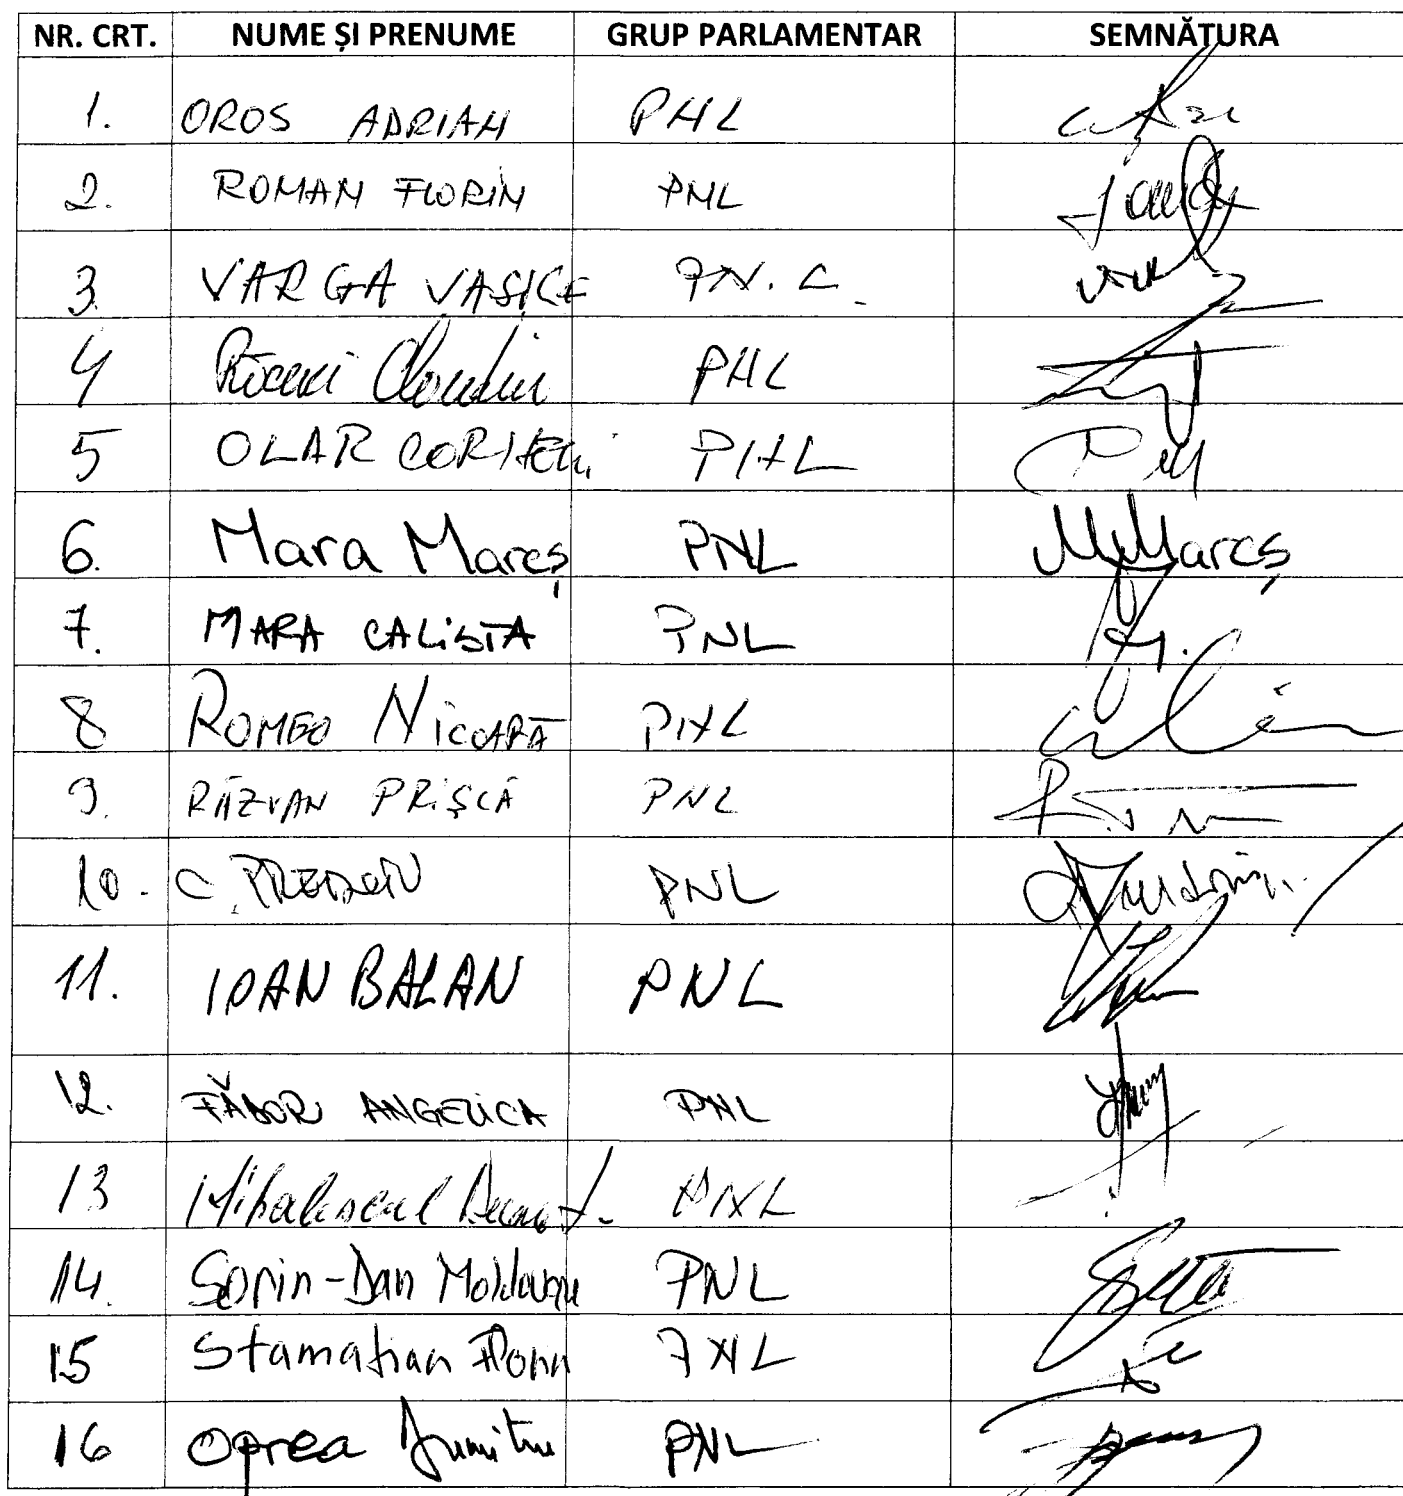 NR. CRT. NUME ȘI PRENUME GRUP PARLAMENTAR SEMNĂTURA
1. OROS ADRIAN PNL
2. ROMAN FLORIN PNL
3. VARGA VASILE PN.L
4 Claudiu PNL
5 OLAR CORNELIU PNL
6. Mara Mareș PNL MMareș
7. MARA CALISTA PNL
8 ROMEO NICOARĂ PNL
9. RĂZVAN PRIȘCĂ PNL
10. C. PREDOIU PNL
11. IOAN BALAN PNL
12. FĂDOR ANGELICA PNL
13 PNL
14. Sorin-Dan Moldovan PNL
15 Stamatian Florin PNL
16 Oprea Dumitru PNL